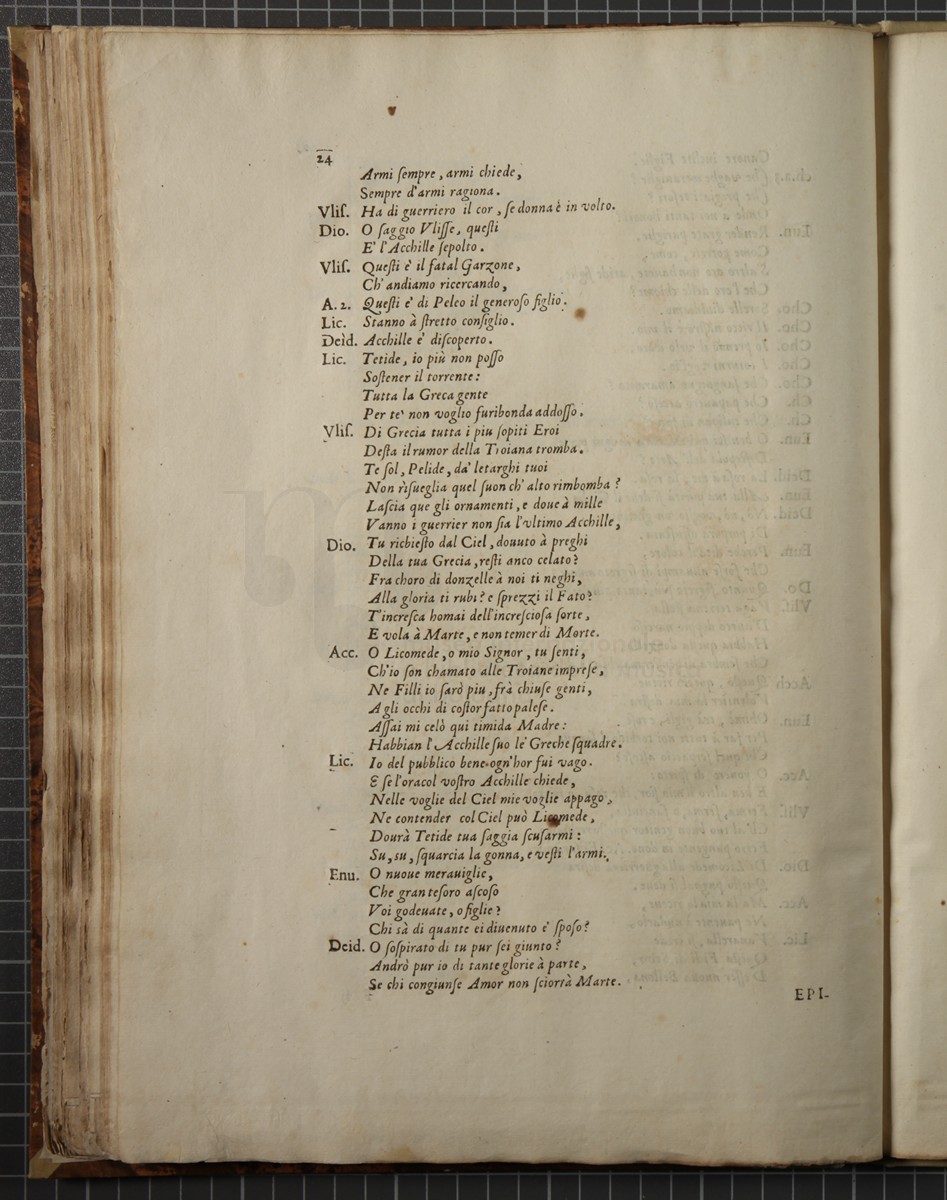 24
Armi ſempre, armi chiede,
Sempre d'armi ragiona.
Vliſ. Ha di guerriero il cor, ſe donna è in volto.
Dio. O ſaggio Vliſſe, queſti
E' l'Acchille ſepolto.
Vliſ. Queſti è il fatal Garzone,
Ch' andiamo ricercando,
A. 2. Queſti e' di Peleo il generoſo figlio.
Lic. Stanno à ſtretto conſiglio.
Deid. Acchille e' diſcoperto.
Lic. Tetide, io più non poſſo
Soſtener il torrente:
Tutta la Greca gente
Per te' non voglio furibonda addoſſo.
Vliſ. Di Grecia tutta i piu ſopiti Eroi
Deſta il rumor della Troiana tromba.
Te ſol, Pelide, da' letarghi tuoi
Non riſueglia quel ſuon ch' alto rimbomba?
Laſcia que gli ornamenti, e doue à mille
Vanno i guerrier non ſia l'vltimo Acchille,
Dio. Tu richieſto dal Ciel, douuto à preghi
Della tua Grecia, reſti anco celato?
Fra choro di donzelle à noi ti neghi,
Alla gloria ti rubi? e ſprezzi il Fato?
T'increſca homai dell'increſcioſa ſorte,
E vola à Marte, e non temer di Morte.
Acc. O Licomede, o mio Signor, tu ſenti,
Ch'io ſon chamato alle Troiane impreſe,
Ne Filli io ſarò piu, frà chiuſe genti,
A gli occhi di coſtor fatto paleſe.
Aſſai mi celò qui timida Madre:
Habbian l'Acchille ſuo le' Greche ſquadre.
Lic. Io del pubblico bene ogn'hor fui vago.
E ſe l'oracol voſtro Acchille chiede,
Nelle voglie del Ciel mie voglie appago,
Ne contender col Ciel può Licomede,
Dourà Tetide tua ſaggia ſcuſarmi:
Su, su, ſquarcia la gonna, e veſti l'armi.
Enu. O nuoue merauiglie,
Che gran teſoro aſcoſo
Voi godeuate, o figlie?
Chi sà di quante ei diuenuto e' ſpoſo?
Deid. O ſoſpirato di tu pur ſei giunto?
Andrò pur io di tante glorie à parte,
Se chi congiunſe Amor non ſciorrà Marte.
EPI-